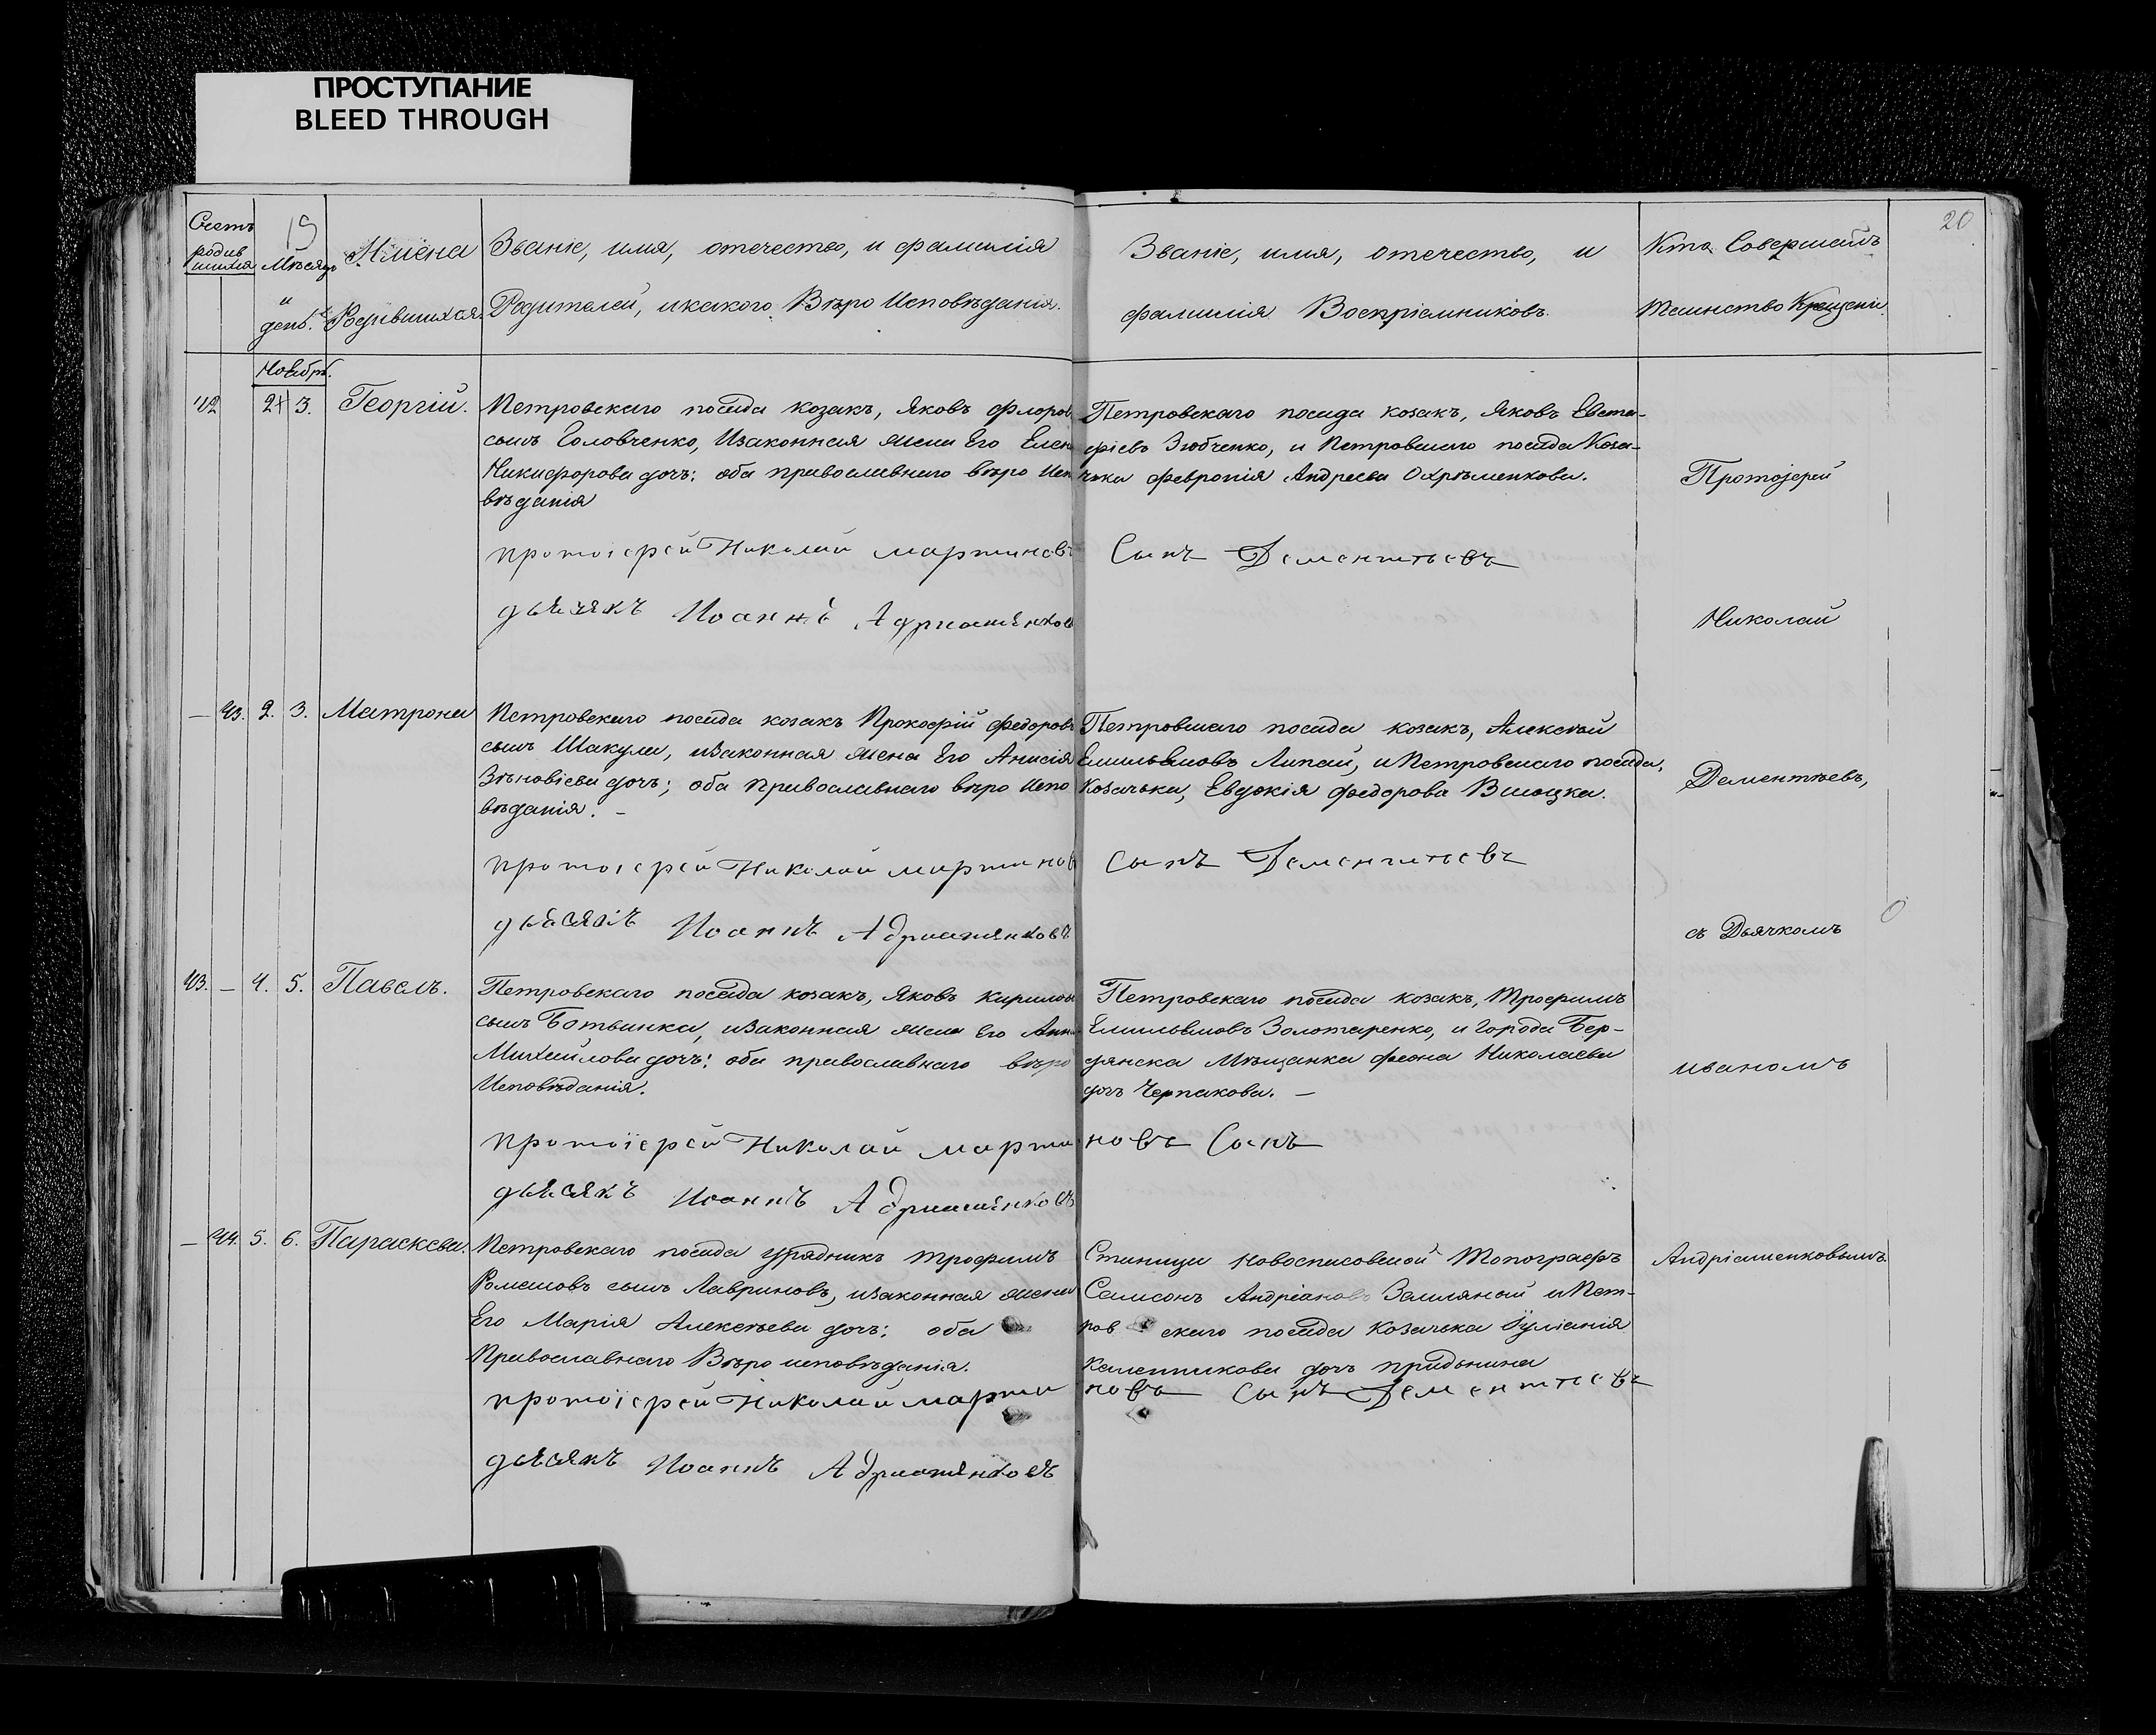 ПРОСТУПАНИЕ
BLEED THROUGH
Счетъ родившихся
19
Мѣсяцъ и день.
Имена Родившихся.
Званіе, имя, отечество, и фамилія
Родителей, и какого Вѣро Исповѣданія.
Званіе, имя, отечество, и
фамилія Воспріемниковъ.
Кто Совершалъ
Таинство Крещенія
20
Ноябрь.
42 2 3. Георгій.
Петровскаго посада козакъ, Яковъ Флоров
сынъ Головченко, изаконная жена Его Елен
Никифорова дочъ: оба православнаго вѣро Исп
вѣданія
Петровскаго посада козакъ, Яковъ Евста-
фіевъ Зюбченко, и Петровскаго посада Коза-
чка Февронія Андреева Охрѣменкова.
Протоіерей
протоіерей Николай мартиновъ Сынъ Дементѣевъ
дьячякъ Иоаннъ
Николай
— 43. 2. 3. Матрона
Петровскаго посада козакъ Прокофій Федоровъ
сынъ Шакула, изаконная жена Его Анисія
Зѣновіева дочъ; оба православнаго вѣро Испо
вѣданія. –
Петровскаго посада козакъ, Алексѣй
Емильяновъ Липай, и Петровскаго посада,
Козачька, Евдокія Федорова
Дементѣевъ,
протоіерей Николай мартинов Сынъ Дементѣевъ
дьячякъ Иоаннъ
съ Дьячкомъ
43. — 4. 5. Павелъ.
Петровскаго посада козакъ, Яковъ Кирилов
сынъ Ботвинка, изаконная жена Его Анна
Михайлова дочъ: оба православнаго вѣро
Исповѣданія.
Петровскаго посада козакъ, Трофимъ
Емильяновъ Золотаренко, и города Бер-
дянска Мѣщанка Феона Николаева
дочъ Черпакова. —
иваномъ
протоіерей Николай марти новъ Сынъ
дьячякъ Иоаннъ
— 44. 5. 6. Параскева.
Петровскаго посада урядникъ Трофимъ
Романовъ сынъ Лавриновъ, изаконная жена
Его Марія Алексѣева дочъ: оба
Православнаго Вѣро исповѣданія.
Станици Новоспасовской Топографъ
Самсонъ Андріановъ Земляной и Пет-
ров скаго посада Козачька Іуліанія
Каленникова дочъ
Андріаменковымъ
протоіерей Николай марти новъ Сынъ Дементѣевъ
дьячякъ Иоаннъ